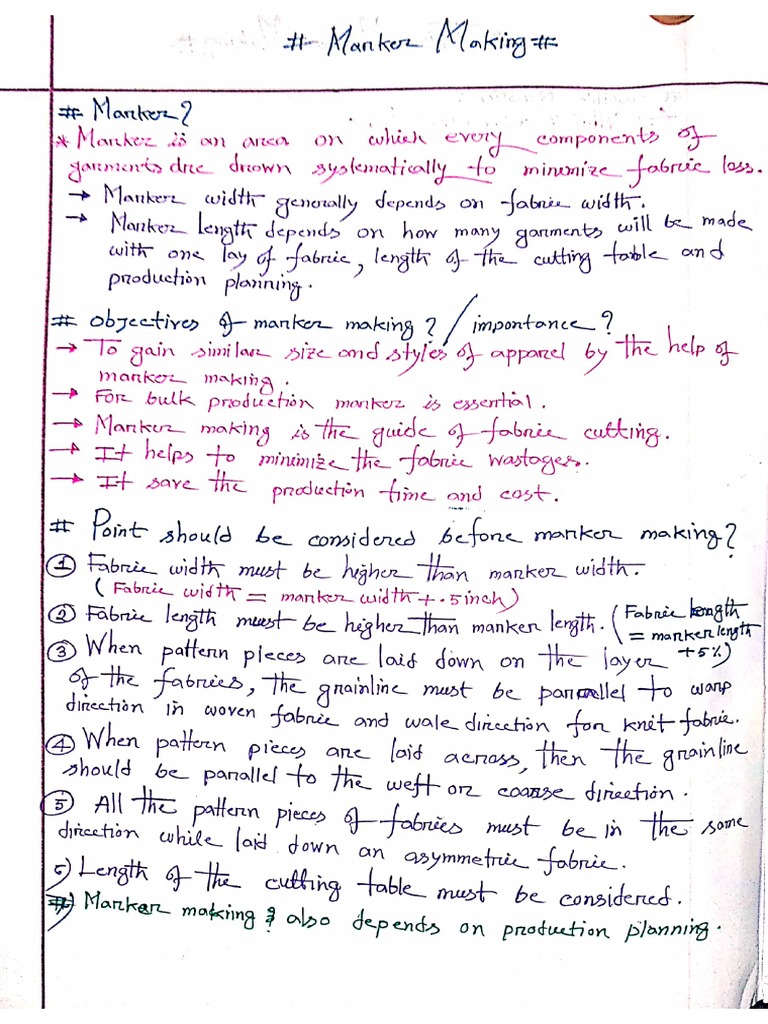 # Marker Making #
# Marker?
* Marker is an area on which every components of
garments are drawn systematically to minimize fabric loss.
→ Marker width generally depends on fabric width.
→ Marker length depends on how many garments will be made
with one lay of fabric, length of the cutting table and
production planning.
# Objectives of marker making? / importance?
→ To gain similar size and styles of apparel by the help of
marker making.
→ For bulk production marker is essential.
→ Marker making is the guide of fabric cutting.
→ It helps to minimize the fabric wastages.
→ It save the production time and cost.
# Point should be considered before marker making?
① Fabric width must be higher than marker width.
(Fabric width = marker width + .5inch)
② Fabric length must be higher than marker length. (Fabric length
= marker length
+5%)
③ When pattern pieces are laid down on the layer
of the fabrics, the grainline must be parallel to warp
direction in woven fabric and wale direction for knit fabric.
④ When pattern pieces are laid across, then the grainline
should be parallel to the weft or coarse direction.
⑤ All the pattern pieces of fabrics must be in the same
direction while laid down an asymmetric fabric.
6) Length of the cutting table must be considered.
7) Marker making also depends on production planning.